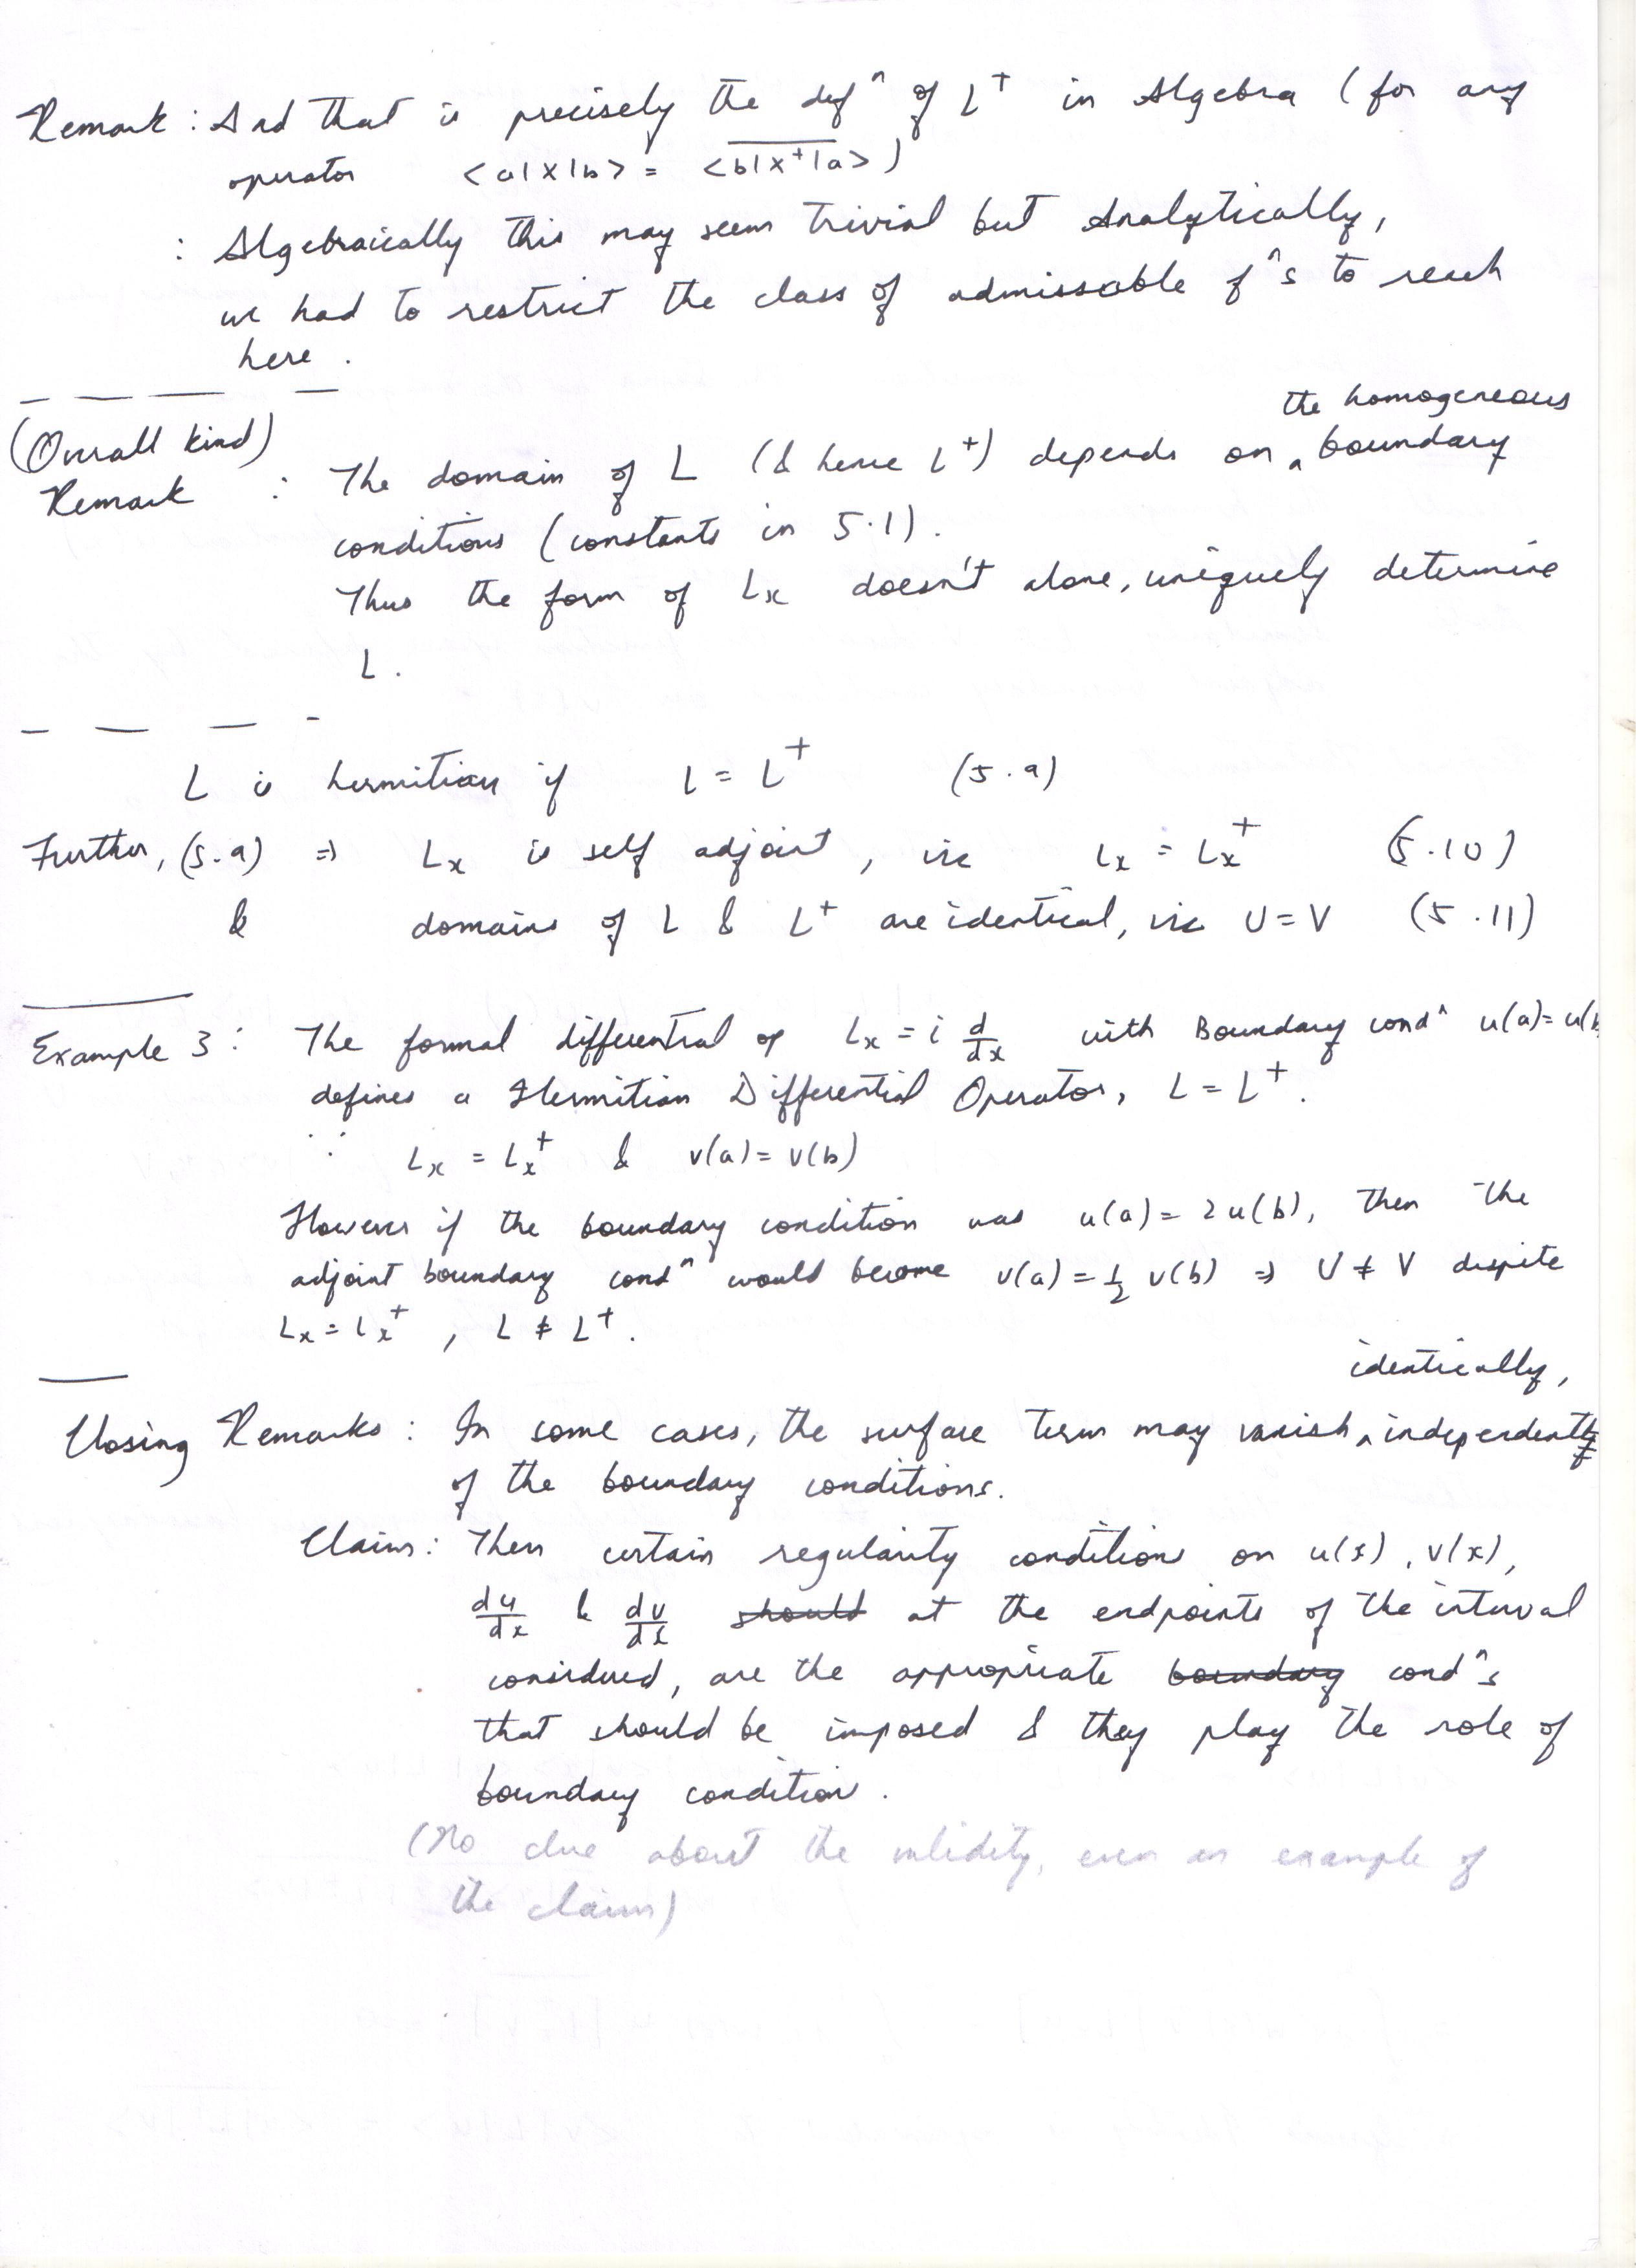 Remark : And that is precisely the def^n of L^+ in Algebra (for any
operator <a|X|b> = \overline{<b|X^+|a>})
: Algebraically this may seem trivial but Analytically,
we had to restrict the class of admissable f^n s to reach
here.
(Overall kind)
the homogeneous
Remark : The domain of L (& hence L^+) depends on ‸ boundary
conditions (constants in 5.1).
Thus the form of Lx doesn't alone, uniquely determine
L.
L is hermitian if L = L^+ (5.9)
Further, (5.9) ⇒ Lx is self adjoint, viz Lx = Lx^+ (5.10)
& domains of L & L^+ are identical, viz U = V (5.11)
Example 3 : The formal differential op Lx = i d/dx with Boundary cond^n u(a)=u(b
defines a Hermitian Differential Operator, L = L^+.
∵ Lx = Lx^+ & v(a) = v(b)
However if the boundary condition was u(a) = 2u(b), then the
adjoint boundary cond^n would become v(a) = 1/2 v(b) ⇒ U ≠ V despite
Lx = Lx^+ , L ≠ L^+.
identically,
Closing Remarks : In some cases, the surface term may vanish ‸ independently
of the boundary conditions.
Claim : Then certain regularity conditions on u(x), v(x),
du/dx & dv/dx should at the endpoints of the interval
considered, are the appropriate boundary cond^n s
that should be imposed & they play the role of
boundary condition.
(No clue about the validity, even an example of
the claim)